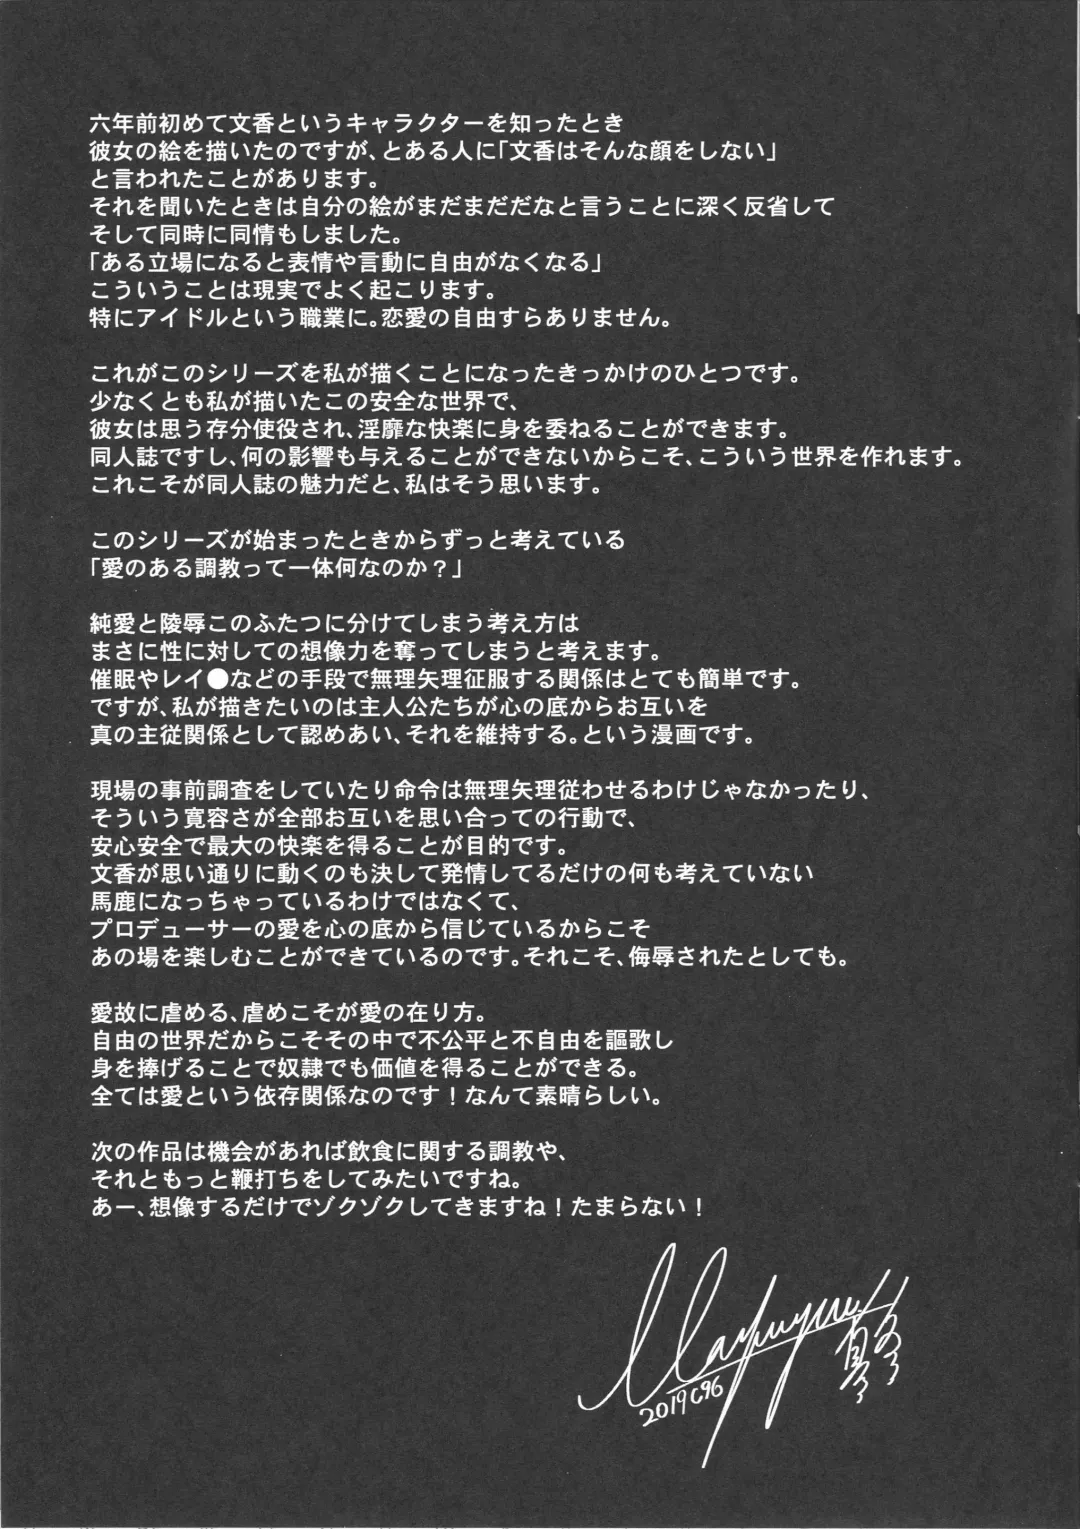 六年前初めて文香というキャラクターを知ったとき
彼女の絵を描いたのですが、とある人に「文香はそんな顔をしない」
と言われたことがあります。
それを聞いたときは自分の絵がまだまだだなと言うことに深く反省して
そして同時に同情もしました。
「ある立場になると表情や言動に自由がなくなる」
こういうことは現実でよく起こります。
特にアイドルという職業に。恋愛の自由すらありません。
これがこのシリーズを私が描くことになったきっかけのひとつです。
少なくとも私が描いたこの安全な世界で、
彼女は思う存分使役され、淫靡な快楽に身を委ねることができます。
同人誌ですし、何の影響も与えることができないからこそ、こういう世界を作れます。
これこそが同人誌の魅力だと、私はそう思います。
このシリーズが始まったときからずっと考えている
「愛のある調教って一体何なのか？」
純愛と陵辱このふたつに分けてしまう考え方は
まさに性に対しての想像力を奪ってしまうと考えます。
催眠やレイ●などの手段で無理矢理征服する関係はとても簡単です。
ですが、私が描きたいのは主人公たちが心の底からお互いを
真の主従関係として認めあい、それを維持する。という漫画です。
現場の事前調査をしていたり命令は無理矢理従わせるわけじゃなかったり、
そういう寛容さが全部お互いを思い合っての行動で、
安心安全で最大の快楽を得ることが目的です。
文香が思い通りに動くのも決して発情してるだけの何も考えていない
馬鹿になっちゃっているわけではなくて、
プロデューサーの愛を心の底から信じているからこそ
あの場を楽しむことができているのです。それこそ、侮辱されたとしても。
愛故に虐める、虐めこそが愛の在り方。
自由の世界だからこそその中で不公平と不自由を謳歌し
身を捧げることで奴隷でも価値を得ることができる。
全ては愛という依存関係なのです！なんて素晴らしい。
次の作品は機会があれば飲食に関する調教や、
それともっと鞭打ちをしてみたいですね。
あー、想像するだけでゾクゾクしてきますね！たまらない！
2019C96